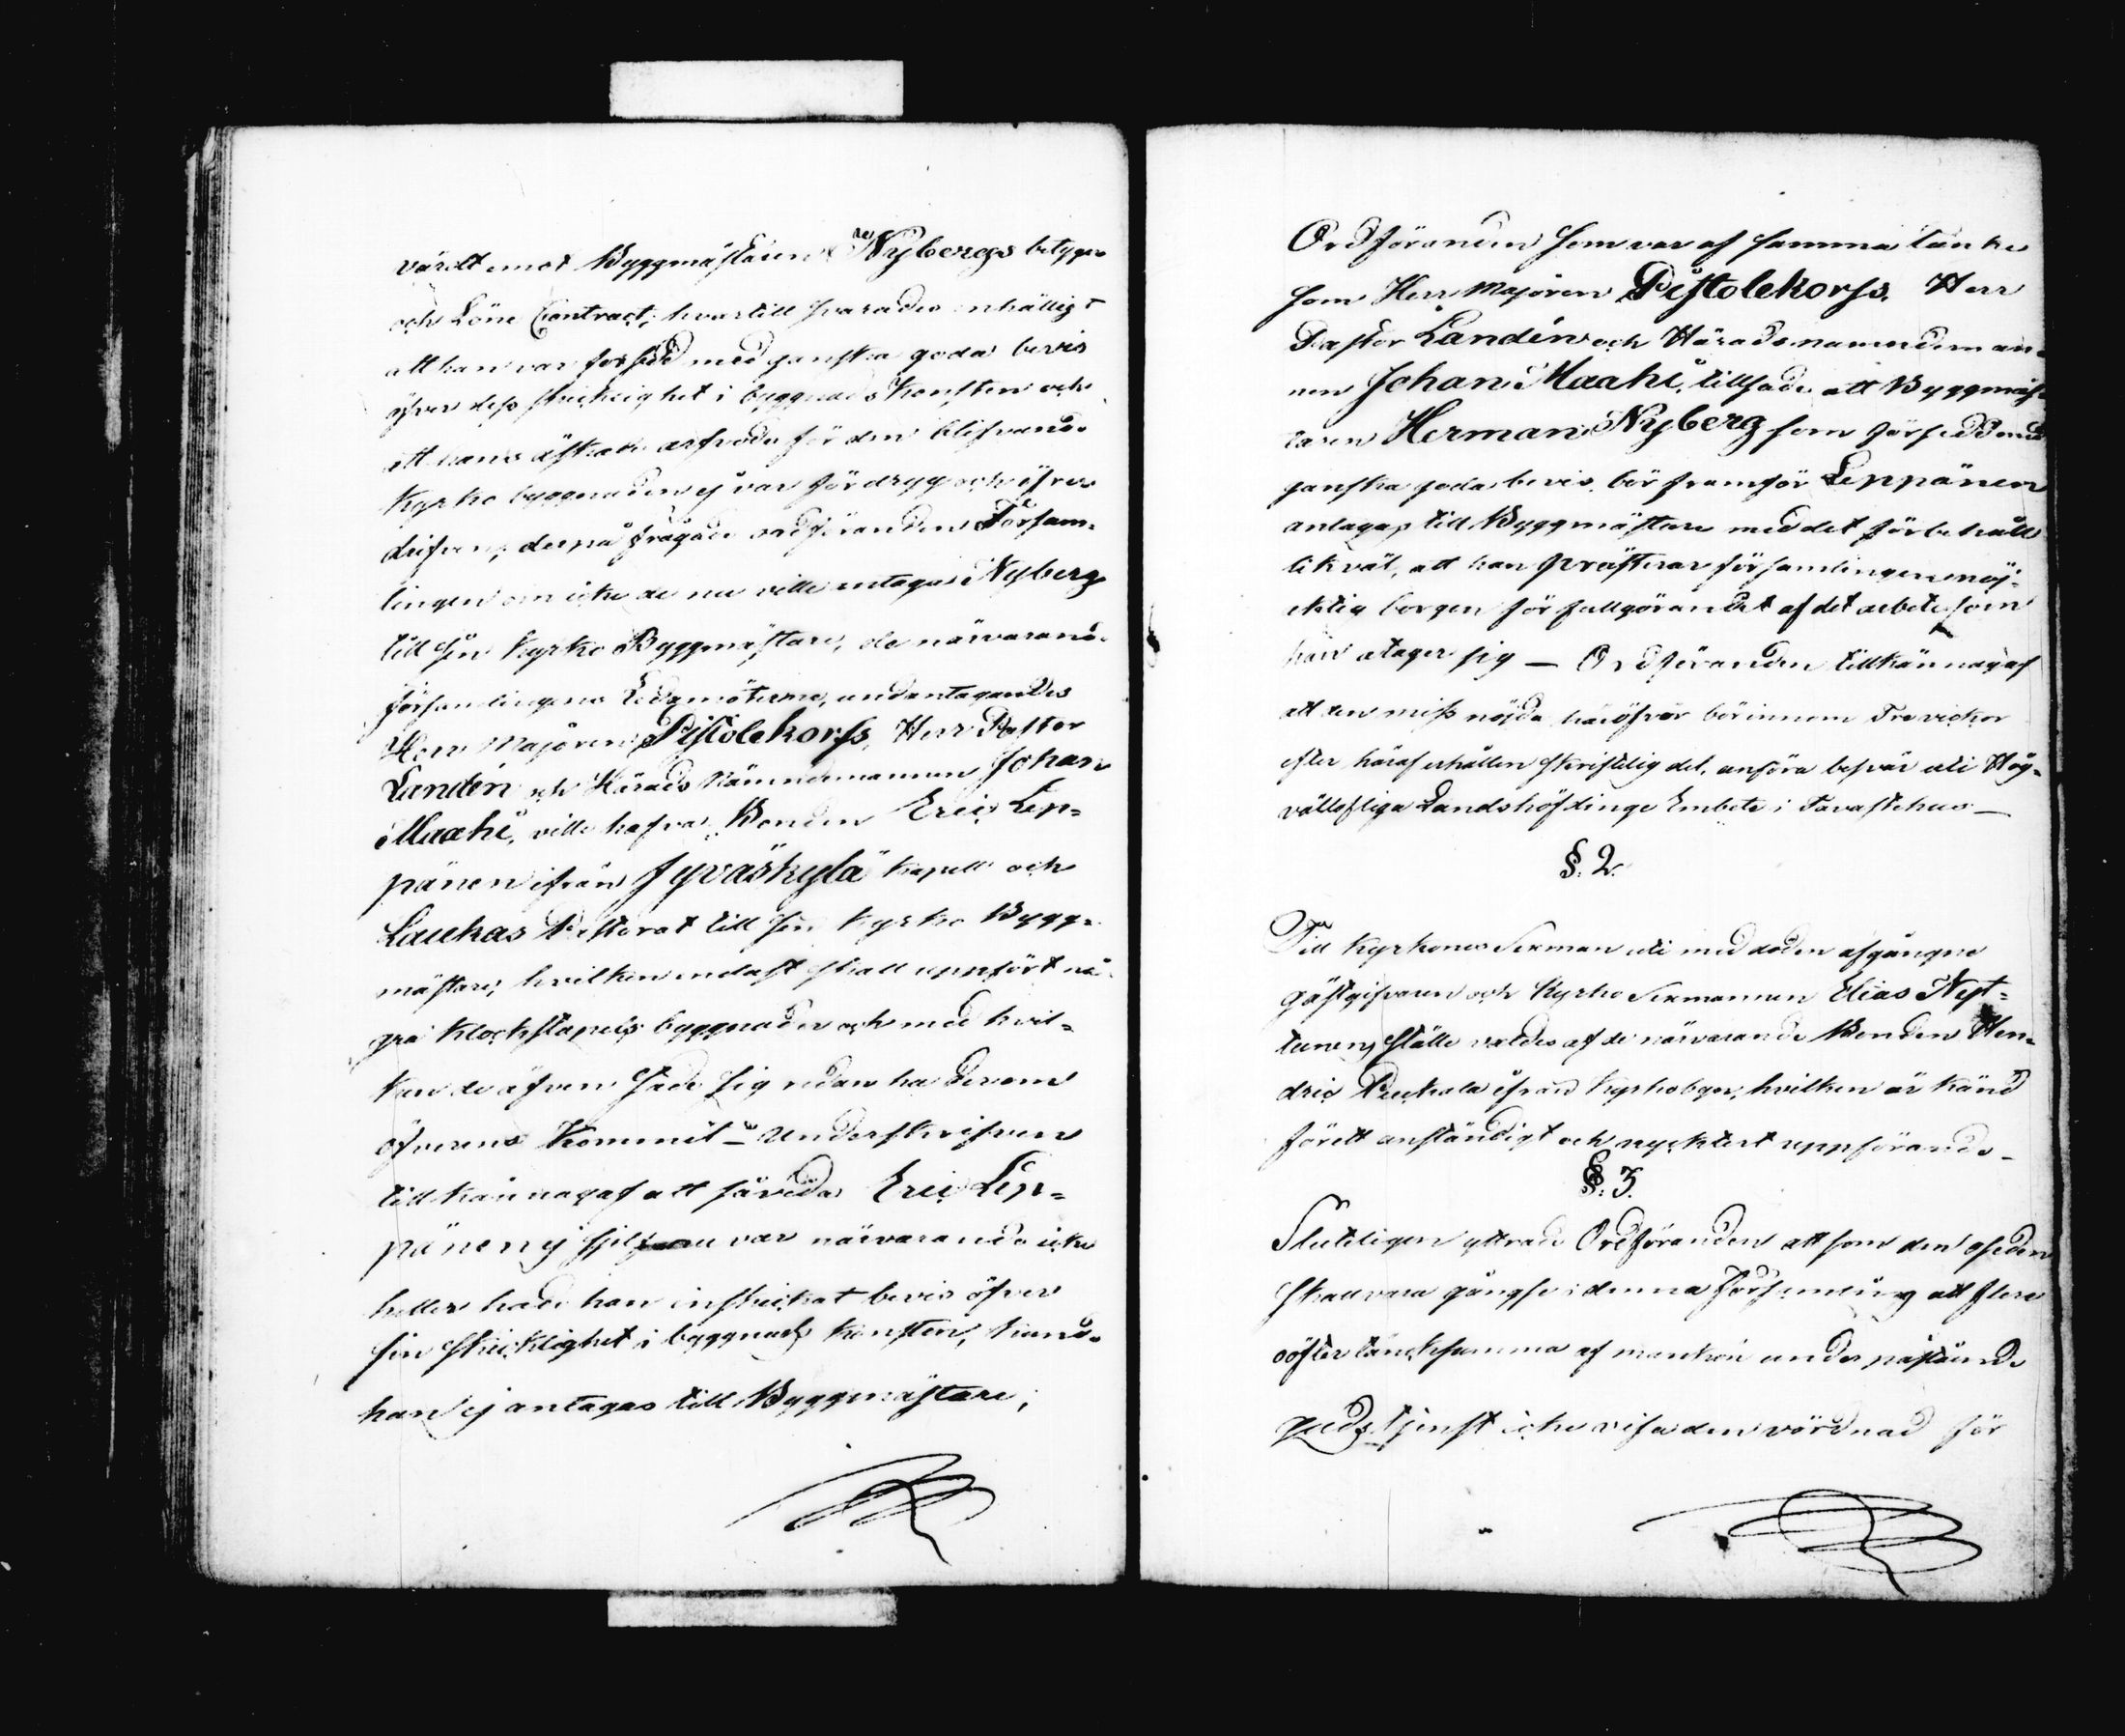 värdt emot Byggmästaren Nybergs betyger
och Löne Contract; hvartill svarades enhälligt
att han var försedd med ganska goda bevis
öfver dess skicklighet i byggnads Konsten och
att hans äskade arfvode för den blifvande
Kyrko byggnaden ej var för dryg och öfver
drifven; derpå frågade ordföranden Försam-
lingen om icke de nu ville antaga Nyberg
till sin Kyrko Byggmästare, de närvarande
församlingens Ledamöterne, undantagandes
Herr Majoren Pistolekorss, Herr Pastor
Landén och Härads Nämndemannen Johan
Maahi, ville hafva Bonden Eric Lep=
pänen ifrån Jyväskylä Kapell och
Laukas Pastorat till sin Kyrko Bygg=
mästare; hvilken endast skall uppfört nå-
gra Klockstapels byggnader och med hvil=
ken de äfven sade sig redan ha derom
öfverens Kommit – Underskrifven
tillkännagaf att såvida Eric Lep=
pänen ej sjelf var närvarande icke
heller hade han inskickat bevis öfver
sin skicklighet i byggnads Konsten, kunde
han ej antagas till Byggmästare;
Ordföranden som var af samma tanke
som Herr Majoren Pistolekorss, Herr
Pastor Landén och Häradsnämndeman-
nen Johan Maahi, tillsade att Byggmäs-
taren Herman Nyberg som försedd med
ganska goda bevis, bör framför Leppänen
antagas till Byggmästare med det förbehåll
likväl, att han præsterar församlingen nöj-
aktig borgen för fullgörandet af det arbete som
han åtager sig — Ordföranden tillkännagaf
att den missnöjda häröfver bör innom Tre vickor
efter häraf erhållen skriftelig del, anföra besvär uti Hög=
vällofliga Landshöfdinge Embetet i Tavastehus —
§. 2.
Till Kyrkones Sexman uti med döden afgångne
gästgifvaren och Kyrko Sexmannen Elias Nyt=
tunens ställe valdes af de närvarande Bonden Hen-
dric Puukala ifrån Kyrkobyn, hvilken är känd
för ett anständigt och nycktert uppförande –
§. 3.
Sluteligen yttrade Ordföranden att som den oseden
skall vara gängse i denna Församling att flere
oöfter tänksamma af mankön under påstående
gudstjenst icke visa den vördnad för